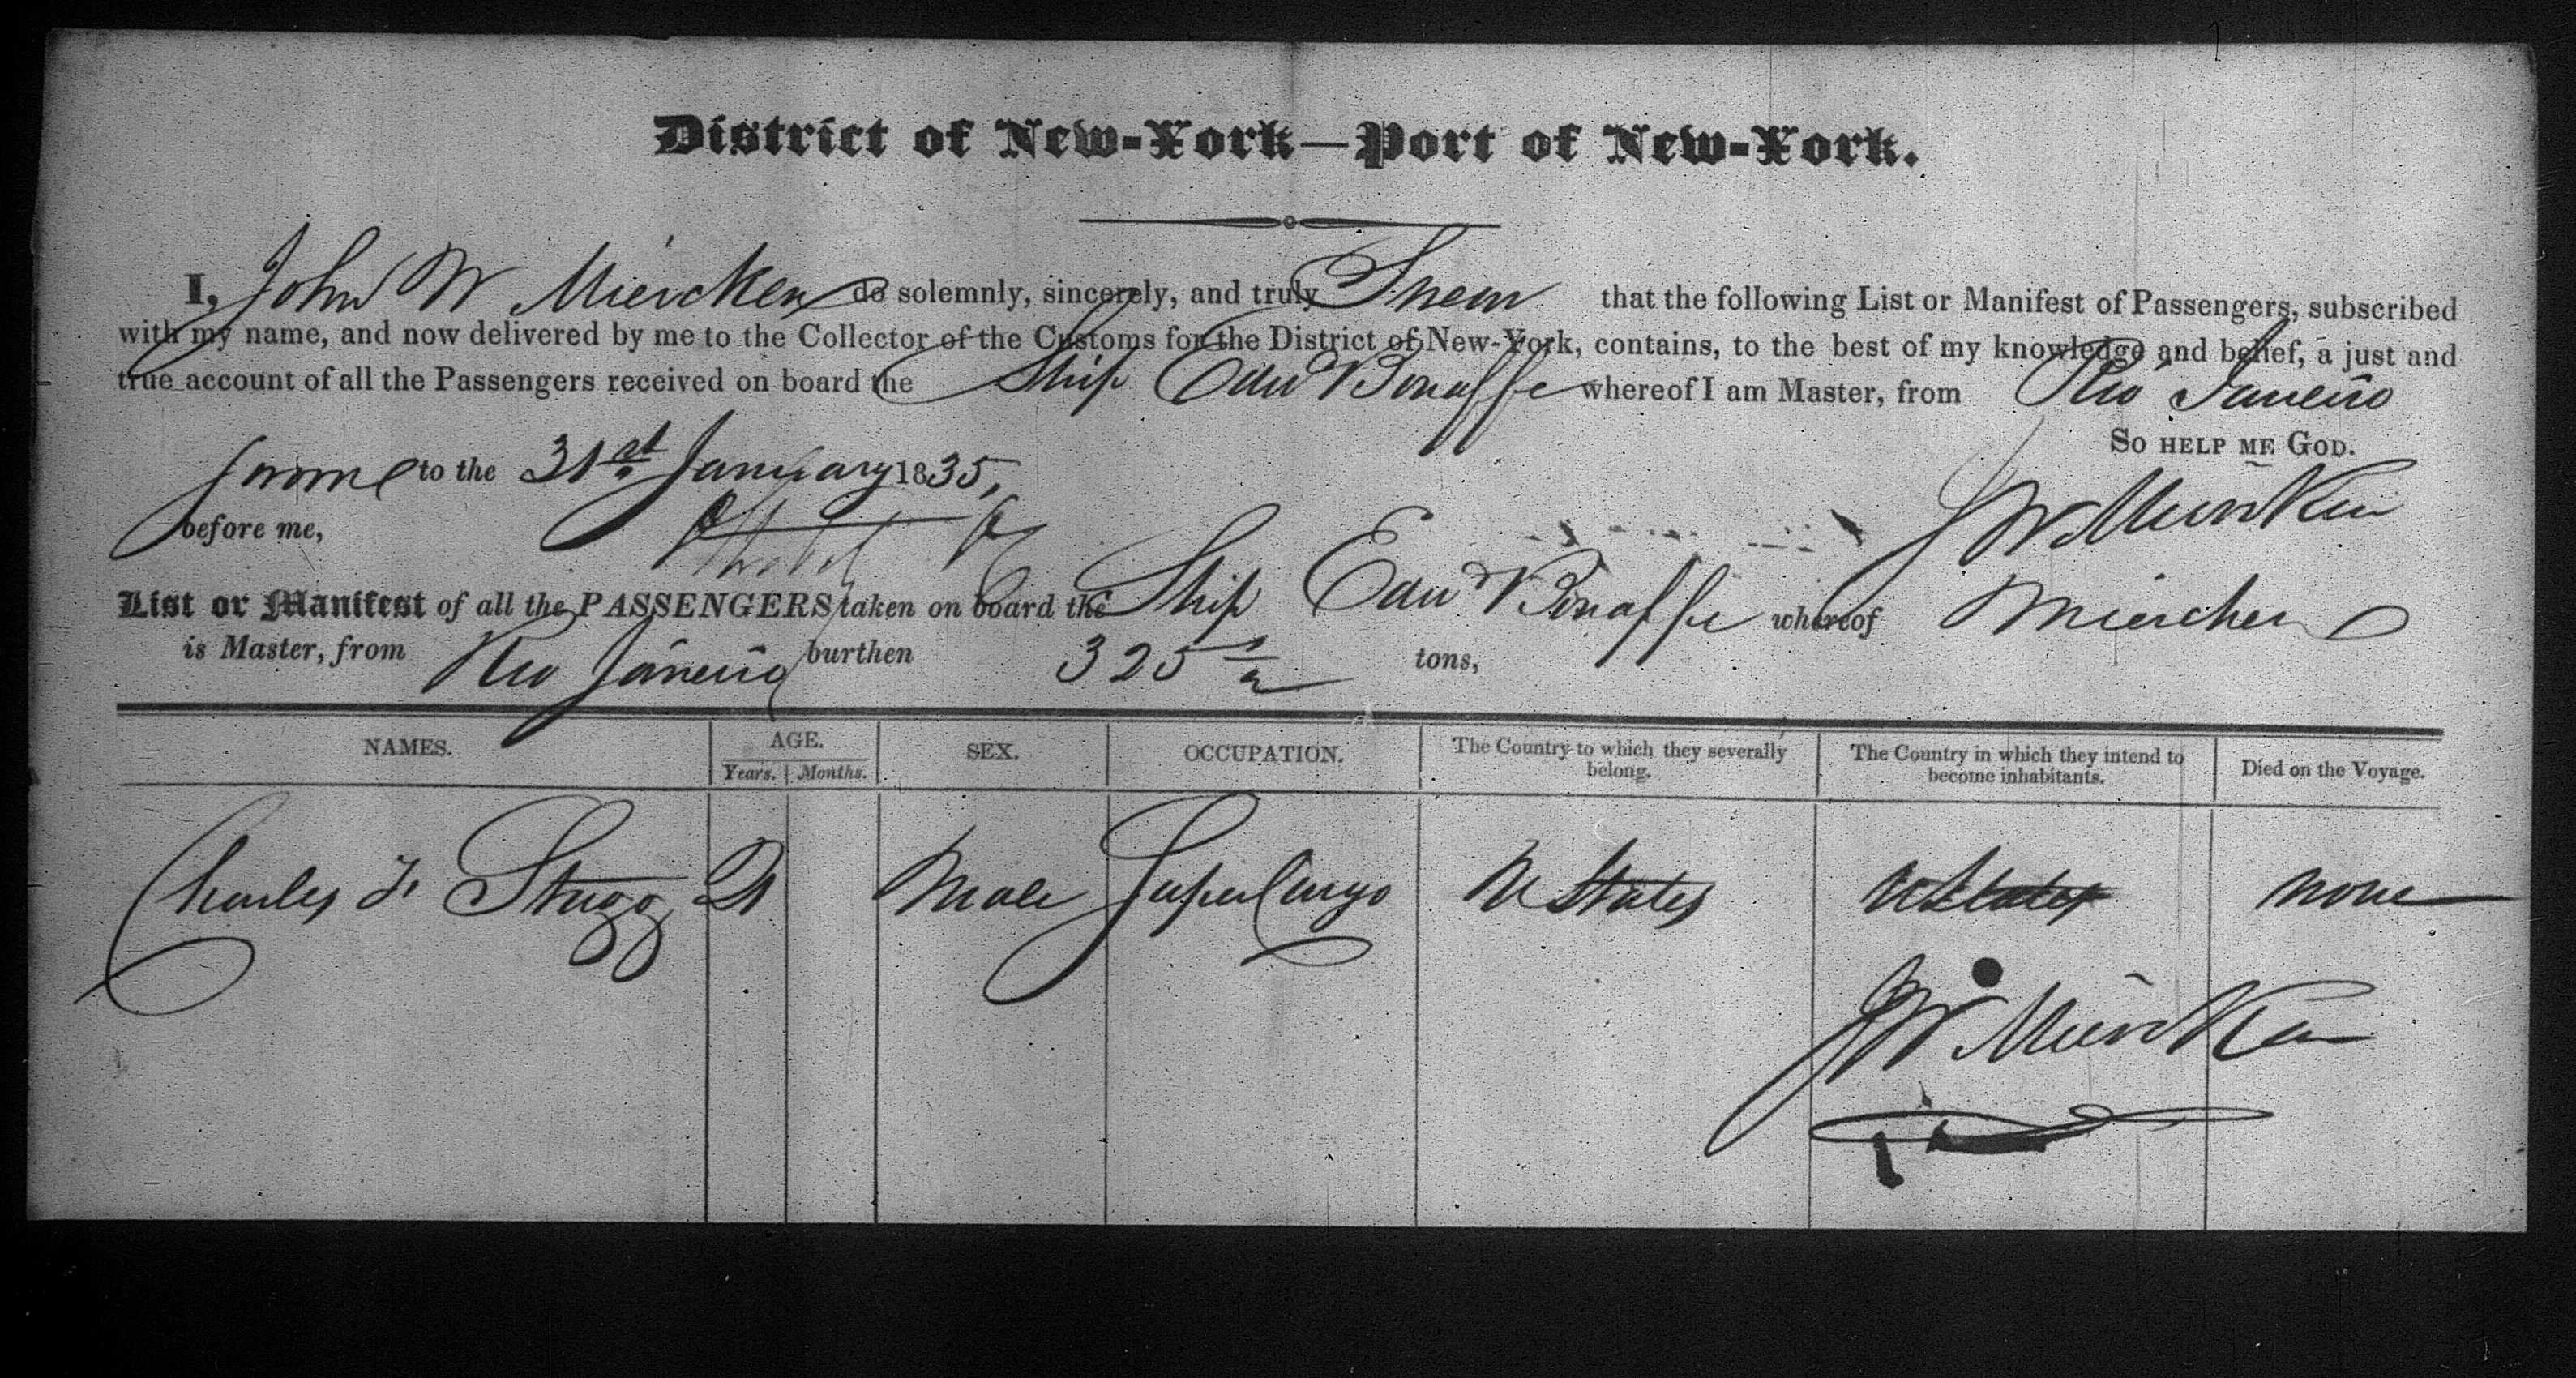 District of New-York—Port of New-York.
I, John W Miercken do solemnly, sincerely, and truly Swear that the following List or Manifest of Passengers, subscribed
with my name, and now delivered by me to the Collector of the Customs for the District of New-York, contains, to the best of my knowledge and belief, a just and
true account of all the Passengers received on board the Ship Edwd Bonaffe whereof I am Master, from Rio Janeiro
So help me God.
Sworn to the 31st January 1835,
before me,
J W Miercken
List or Manifest of all the PASSENGERS taken on board the Ship Edwd Bonaffe whereof Miercken
is Master, from Rio Janeiro burthen 325 tons,
NAMES. AGE. SEX. OCCUPATION. The Country to which they severally belong. The Country in which they intend to become inhabitants. Died on the Voyage.
Years. Months.
Charles F. Stugg 21 Male Super Cargo U States U States none
J W Miercken